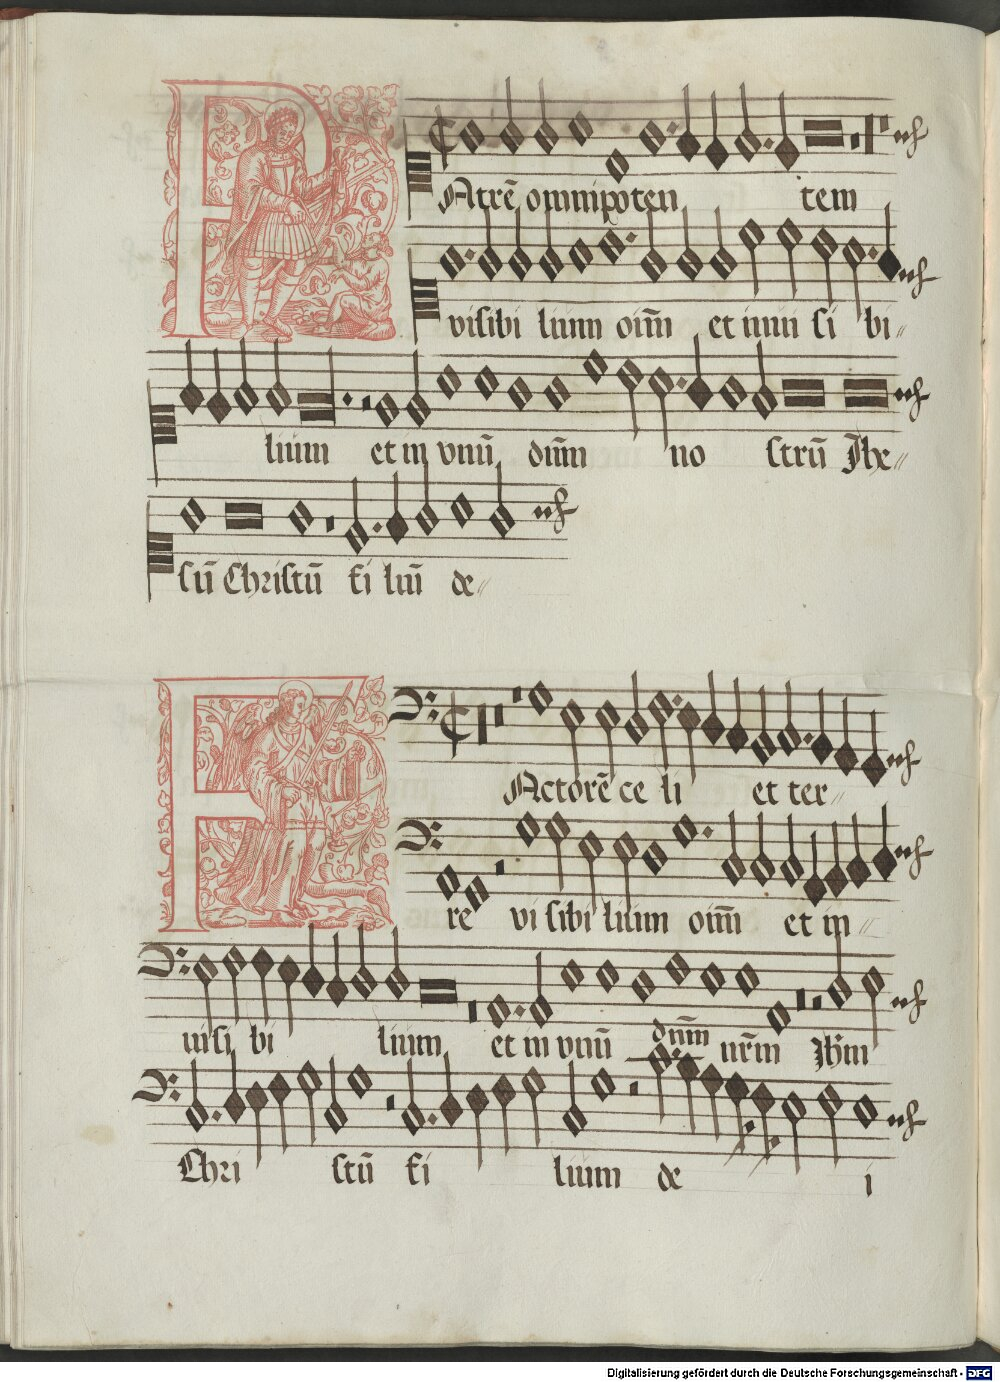 PAtrē omnipoten tem
visibi lium oīm et inui si bi„
lium et in vnū dn̄m no strū Jhe„
sū Christū fi liū de„
FActorē ce li et ter„
re vi sibi lium oīm et in„
uisi bi lium et in vnū dn̄m nr̄m Jhm
Chri stū fi lium de i
Digitalisierung gefördert durch die Deutsche Forschungsgemeinschaft - DFG